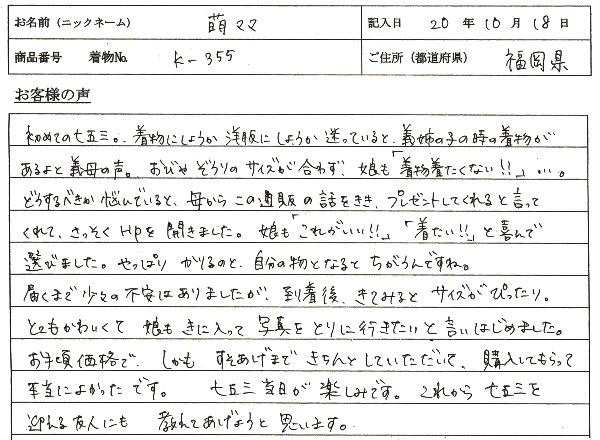 お名前（ニックネーム） 萌ママ 記入日 20年10月18日
商品番号 着物No. K-355 ご住所（都道府県） 福岡県
お客様の声
初めての七五三。着物にしようか洋服にしようか迷っていると、義姉の子の時の着物が
あるよと義母の声。おびやぞうりのサイズが合わず、娘も「着物着たくない!!」…。
どうするべきか悩んでいると、母からこの通販の話をきき、プレゼントしてくれると言って
くれて、さっそくHPを開きました。娘も「これがいい!!」「着たい!!」と喜んで
選びました。やっぱりかりるのと、自分の物となるとちがうんですね。
届くまで少々の不安はありましたが、到着後、きてみるとサイズがぴったり。
とてもかわいくて娘もきに入って写真をとりに行きたいと言いはじめました。
お手頃価格で、しかもすそあげまできちんとしていただいて、購入してもらって
本当によかったです。 七五三当日が楽しみです。これから七五三を
迎える友人にも教えてあげようと思います。